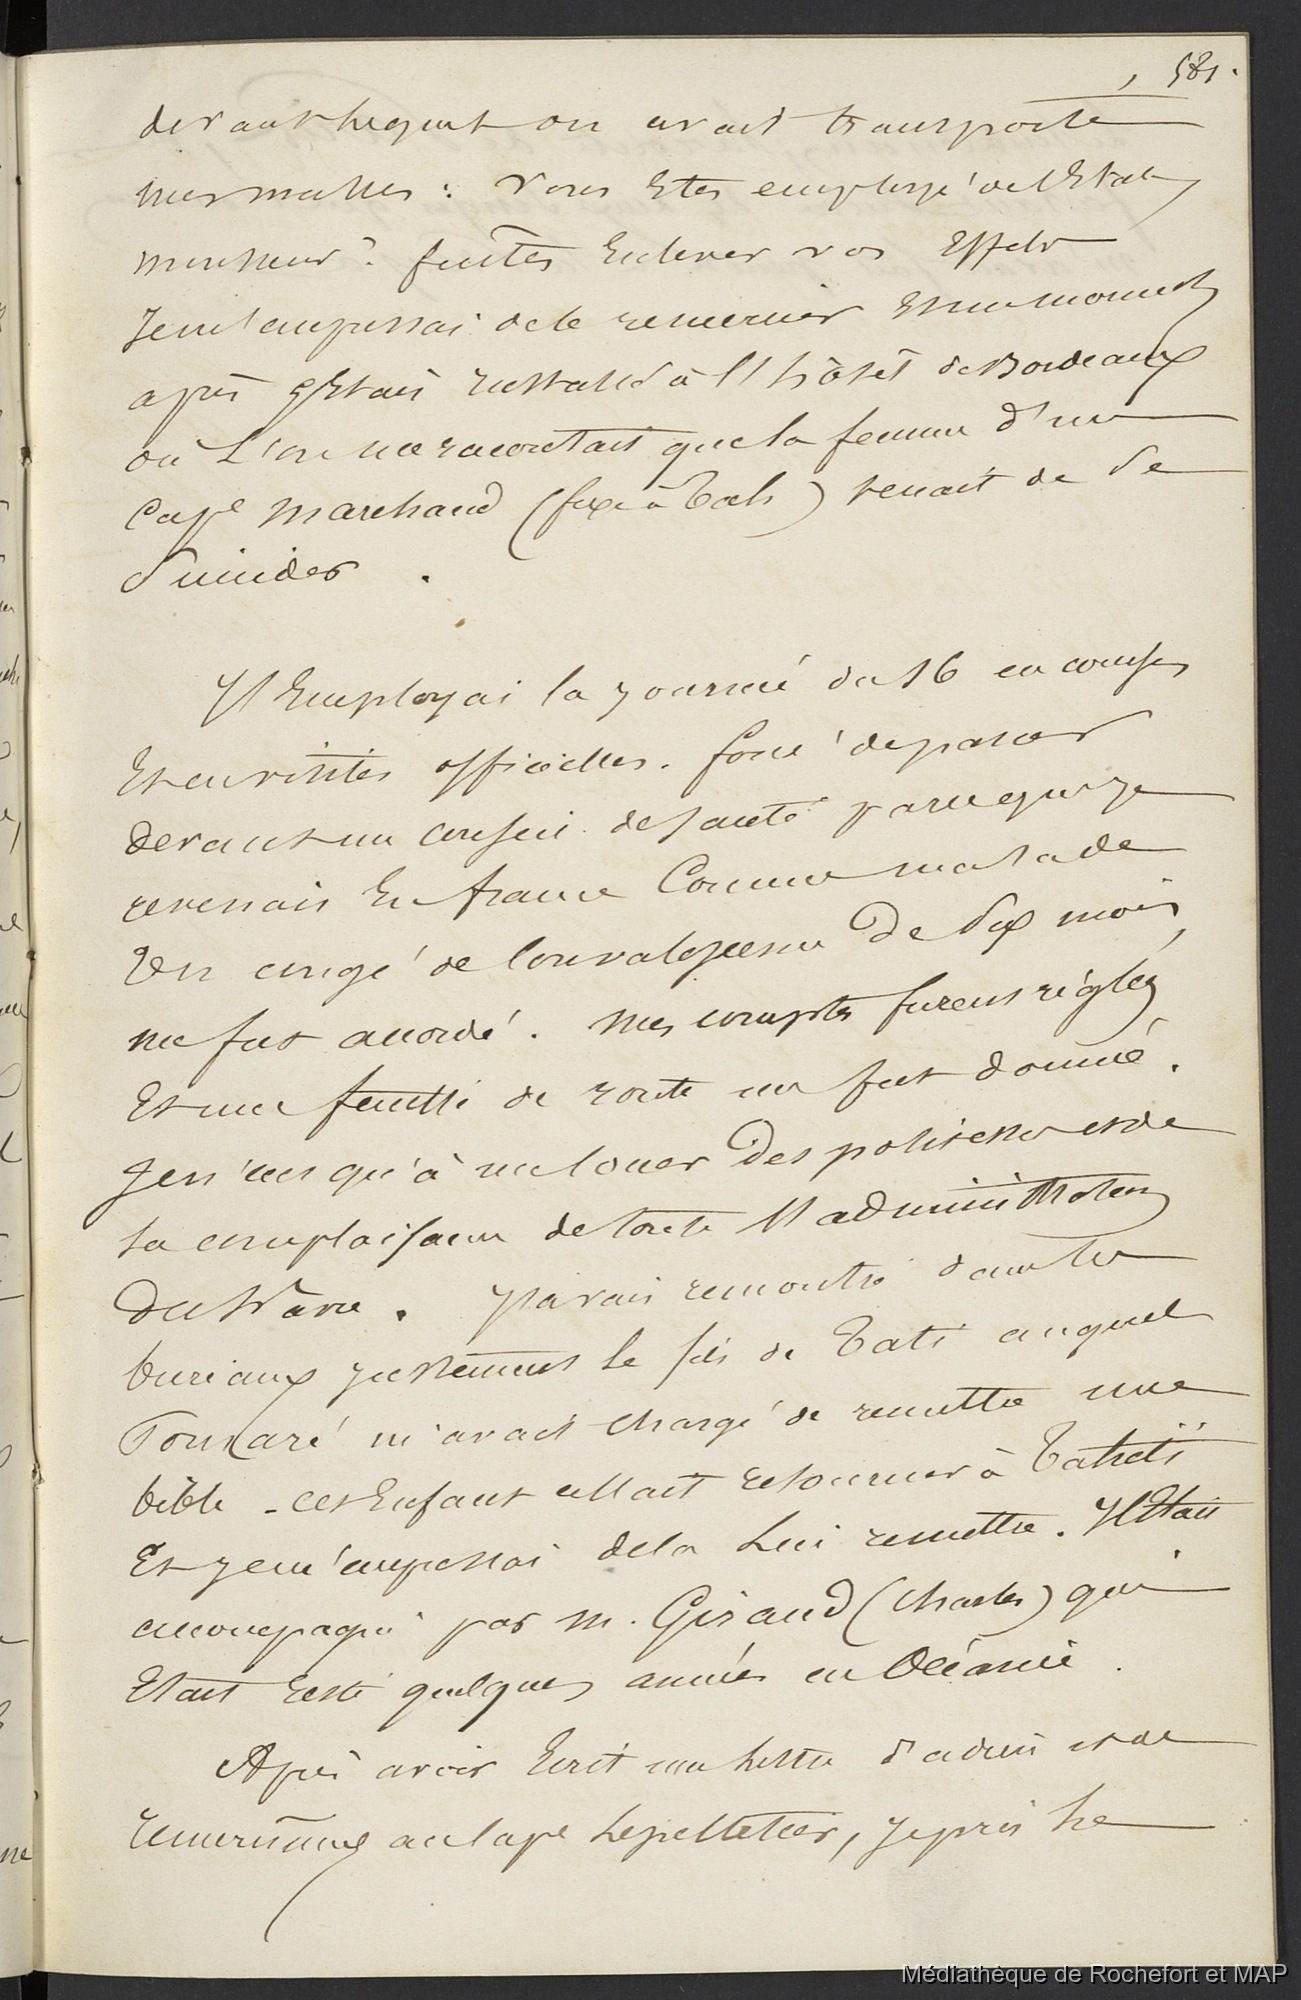 581.
devant lequel on avait transporté
mes malles : Vous Etes employé de l'Etat,
monsieur ? faites Enlever vos Effets
Je m'empressai de le remercier Et un moment
après j'Etais installé à l'hôtel de Bordeaux
où L'on me racontait que la femme d'un
Cape Marchand (fixé à Taïti) venait de Se
Suicider .
J'Employai la journée du 16 en courses
Et en visites officielles. forcé de passer
devant un conseil de santé parceque je
revenais En france Comme malade
Un congé de Convalescence De Six mois,
me fut accordé. Mes comptes furent réglés
Et une feuille de route me fut donnée.
Je n'eus qu'à me louer Des politesses et de
La complaisance de toute l'administration
Du hâvre. J'avais rencontré dans les
bureaux justement le fils de Tati auquel
Pomaré m'avait chargé de remettre une
bible - cet Enfant allait retourner à Tahiti
Et je m'empressai de la Lui remettre. Il Etait
accompagné par M. Giraud (Charles) qui
Etait resté quelques années en Océanie.
Après avoir Ecrit une lettre d'adieu et de
Remerciment au Cape Lepelletier, je pris le
Médiathèque de Rochefort et MAP